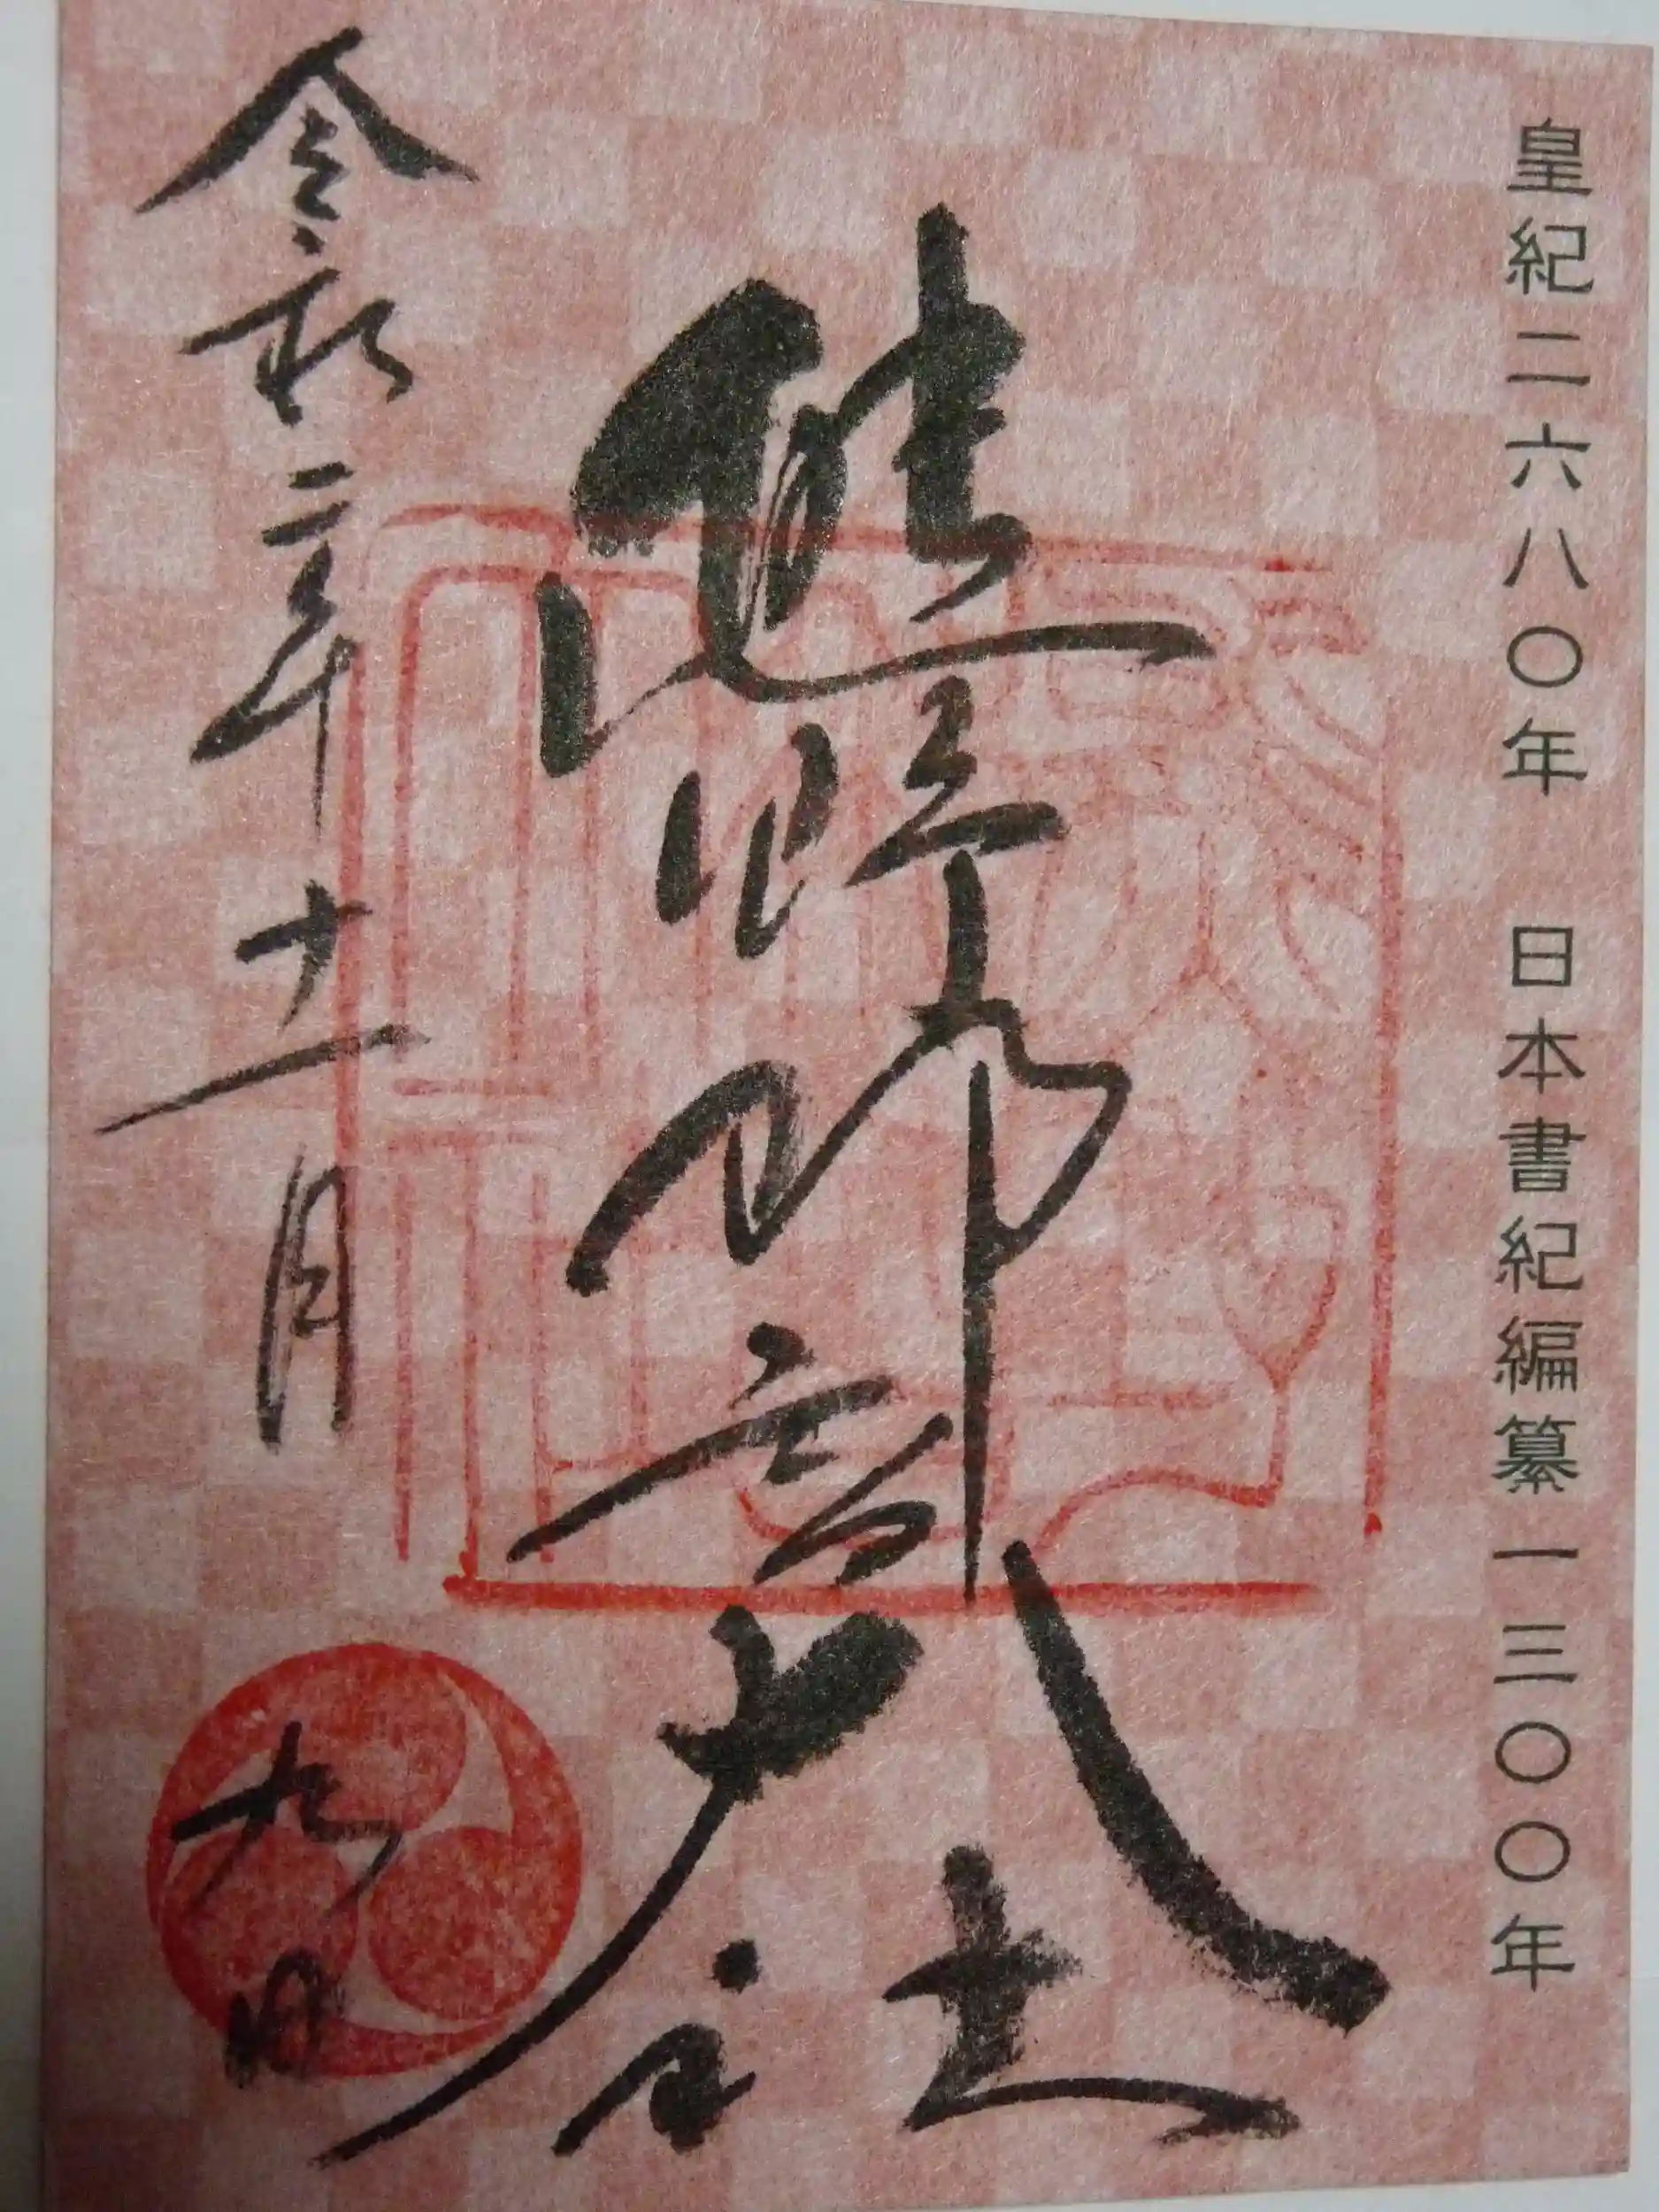 皇紀二六八〇年 日本書紀編纂一三〇〇年
熊野那智大社
令和二年十一月
九日